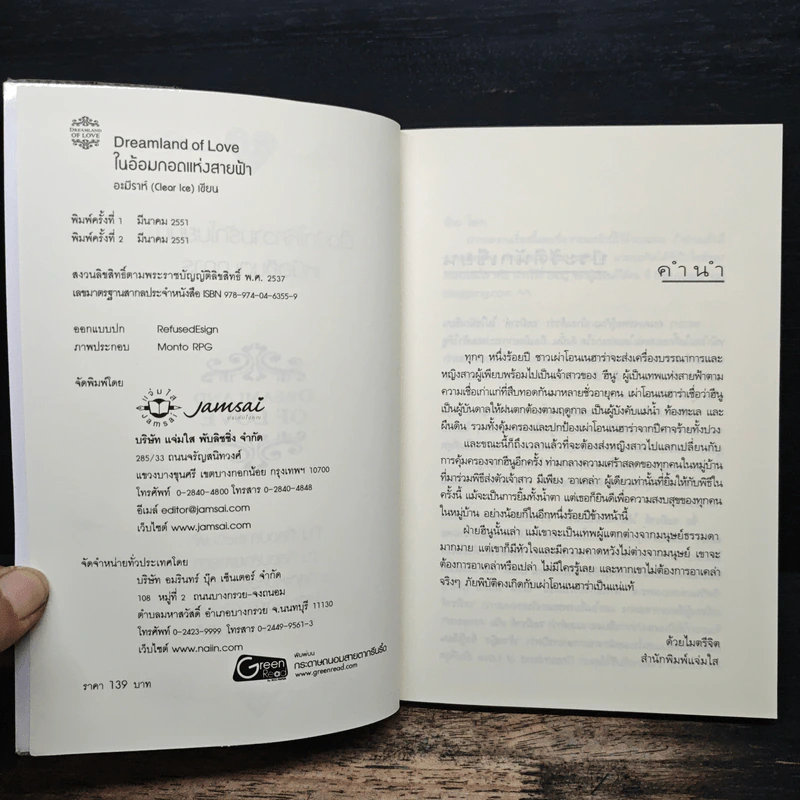 DREAMLAND
OF LOVE
Dreamland of Love
ในอ้อมกอดแห่งสายฟ้า
อะมีราห์ (Clear Ice) เขียน
พิมพ์ครั้งที่ 1 มีนาคม 2551
พิมพ์ครั้งที่ 2 มีนาคม 2551
สงวนลิขสิทธิ์ตามพระราชบัญญัติลิขสิทธิ์ พ.ศ. 2537
เลขมาตรฐานสากลประจำหนังสือ ISBN 978-974-04-6355-9
ออกแบบปก RefusedEsign
ภาพประกอบ Monto RPG
จัดพิมพ์โดย
แจ่มใส
jamsai
jamsai
บริษัท แจ่มใส พับลิชชิ่ง จำกัด
285/33 ถนนจรัญสนิทวงศ์
แขวงบางขุนศรี เขตบางกอกน้อย กรุงเทพฯ 10700
โทรศัพท์ 0-2840-4800 โทรสาร 0-2840-4848
อีเมล์ editor@jamsai.com
เว็บไซต์ www.jamsai.com
จัดจำหน่ายทั่วประเทศโดย
บริษัท อมรินทร์ บุ๊ค เซ็นเตอร์ จำกัด
108 หมู่ที่ 2 ถนนบางกรวย-จงถนอม
ตำบลมหาสวัสดิ์ อำเภอบางกรวย จ.นนทบุรี 11130
โทรศัพท์ 0-2423-9999 โทรสาร 0-2449-9561-3
เว็บไซต์ www.naiin.com
Green
Read
พิมพ์บน
กระดาษถนอมสายตากรีนรี้ด
www.greenread.com
ราคา 139 บาท
คำนำ
ทุกๆ หนึ่งร้อยปี ชาวเผ่าโอนเนฮาร่าจะส่งเครื่องบรรณาการและ
หญิงสาวผู้เพียบพร้อมไปเป็นเจ้าสาวของ 'ฮีนู' ผู้เป็นเทพแห่งสายฟ้าตาม
ความเชื่อเก่าแก่ที่สืบทอดกันมาหลายชั่วอายุคน เผ่าโอนเนฮาร่าเชื่อว่าฮีนู
เป็นผู้บันดาลให้ฝนตกต้องตามฤดูกาล เป็นผู้บังคับแม่น้ำ ท้องทะเล และ
ผืนดิน รวมทั้งคุ้มครองและปกป้องเผ่าโอนเนฮาร่าจากปีศาจร้ายทั้งปวง
และขณะนี้ก็ถึงเวลาแล้วที่จะต้องส่งหญิงสาวไปแลกเปลี่ยนกับ
การคุ้มครองจากฮีนูอีกครั้ง ท่ามกลางความเศร้าสลดของทุกคนในหมู่บ้าน
ที่มาร่วมพิธีส่งตัวเจ้าสาว มีเพียง 'อาเคล่า' ผู้เดียวเท่านั้นที่ยิ้มให้กับพิธีใน
ครั้งนี้ แม้จะเป็นการยิ้มทั้งน้ำตา แต่เธอก็ยินดีเพื่อความสงบสุขของทุกคน
ในหมู่บ้าน อย่างน้อยก็ในอีกหนึ่งร้อยปีข้างหน้านี้
ฝ่ายฮีนูนั้นเล่า แม้เขาจะเป็นเทพผู้แตกต่างจากมนุษย์ธรรมดา
มากมาย แต่เขาก็มีหัวใจและมีความคาดหวังไม่ต่างจากมนุษย์ เขาจะ
ต้องการอาเคล่าหรือเปล่า ไม่มีใครรู้เลย และหากเขาไม่ต้องการอาเคล่า
จริงๆ ภัยพิบัติคงเกิดกับเผ่าโอนเนฮาร่าเป็นแน่แท้
ด้วยไมตรีจิต
สำนักพิมพ์แจ่มใส